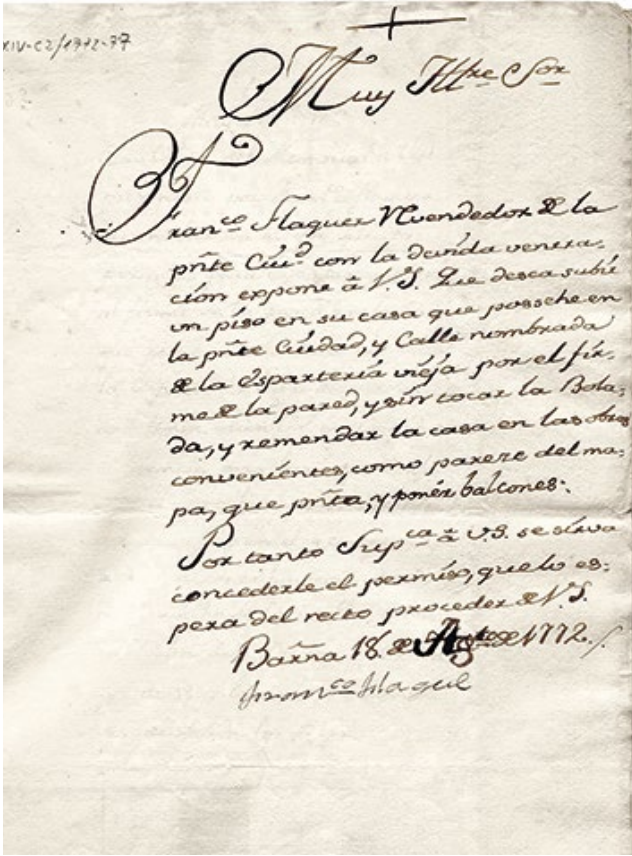 XIV-C2/1772-77
Muy Illtre Sor
Franco. Flaquer Revendedor de la
pñte Ciud. con la devida venera-
cion expone â V.S. Que desea subir
un piso en su casa que posshe en
la pñte Ciudad, y Calle nombrada
de la Esparteria vieja por el fir-
me de la pared, y sin tocar la Bola-
da, y remendar la casa en las obras
convenientes, como parere del ma-
pa, que pñta, y poner balcones.
Por tanto Supca. â V.S. se sirva
concederle el permiso, que lo es-
pera del recto proceder de V.S.
Barña 18. de Agto de 1772./.
franco flaquer